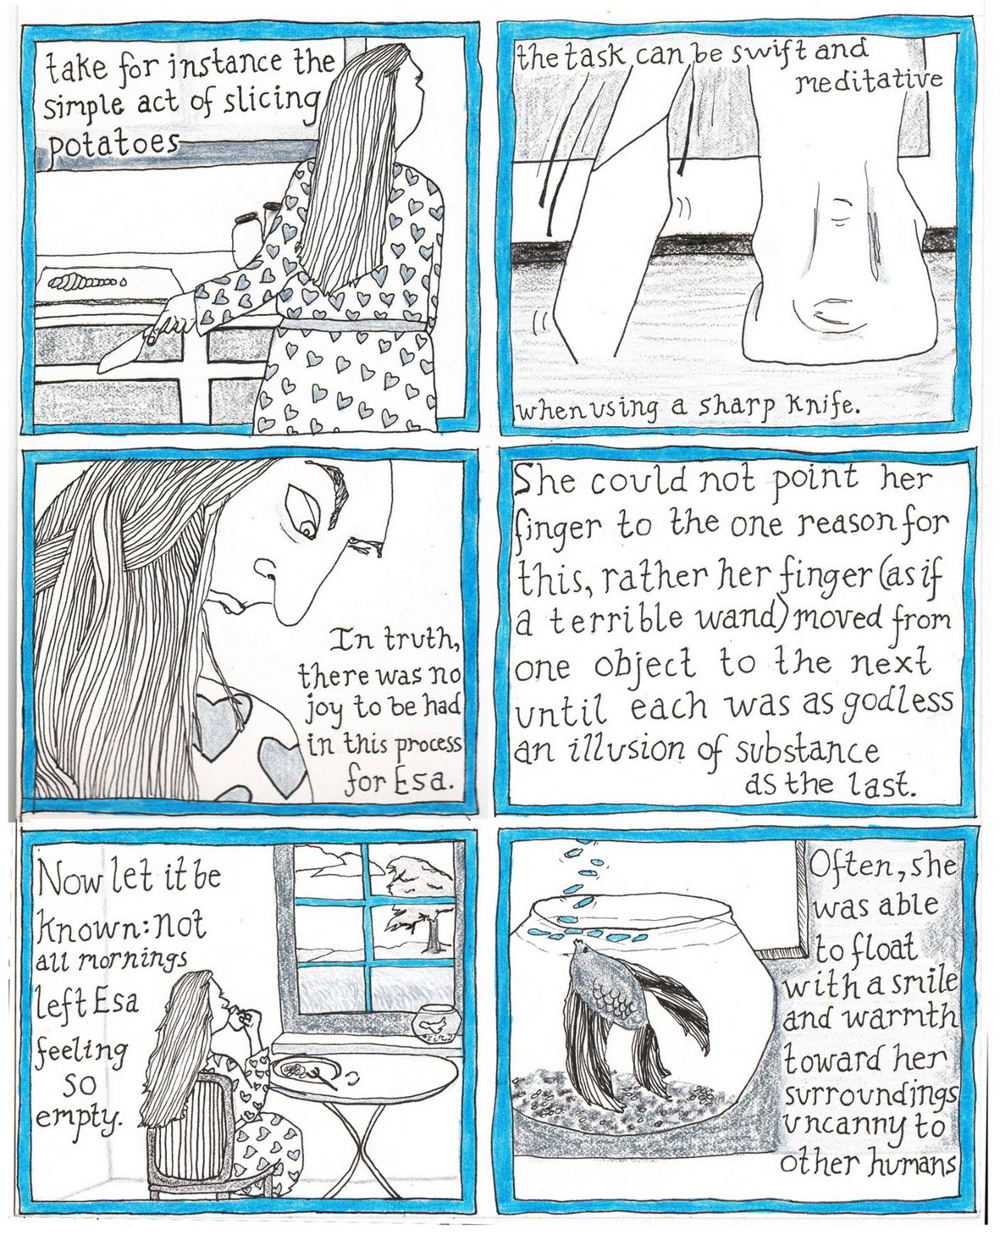 take for instance the
simple act of slicing
potatoes
the task can be swift and
meditative
when using a sharp knife.
In truth,
there was no
joy to be had
in this process
for Esa.
She could not point her
finger to the one reason for
this, rather her finger (as if
a terrible wand) moved from
one object to the next
until each was as godless
an illusion of substance
as the last.
Now let it be
known: not
all mornings
left Esa
feeling
so
empty.
Often, she
was able
to float
with a smile
and warmth
toward her
surroundings
uncanny to
other humans